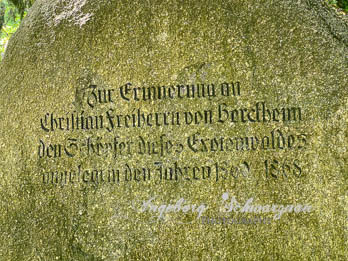 Zur Erinnerung an
Christian Freiherrn von Berckheim
den Schöpfer dieses Exotenwaldes
in den Jahren 1868
Ingeborg Schwarzmann